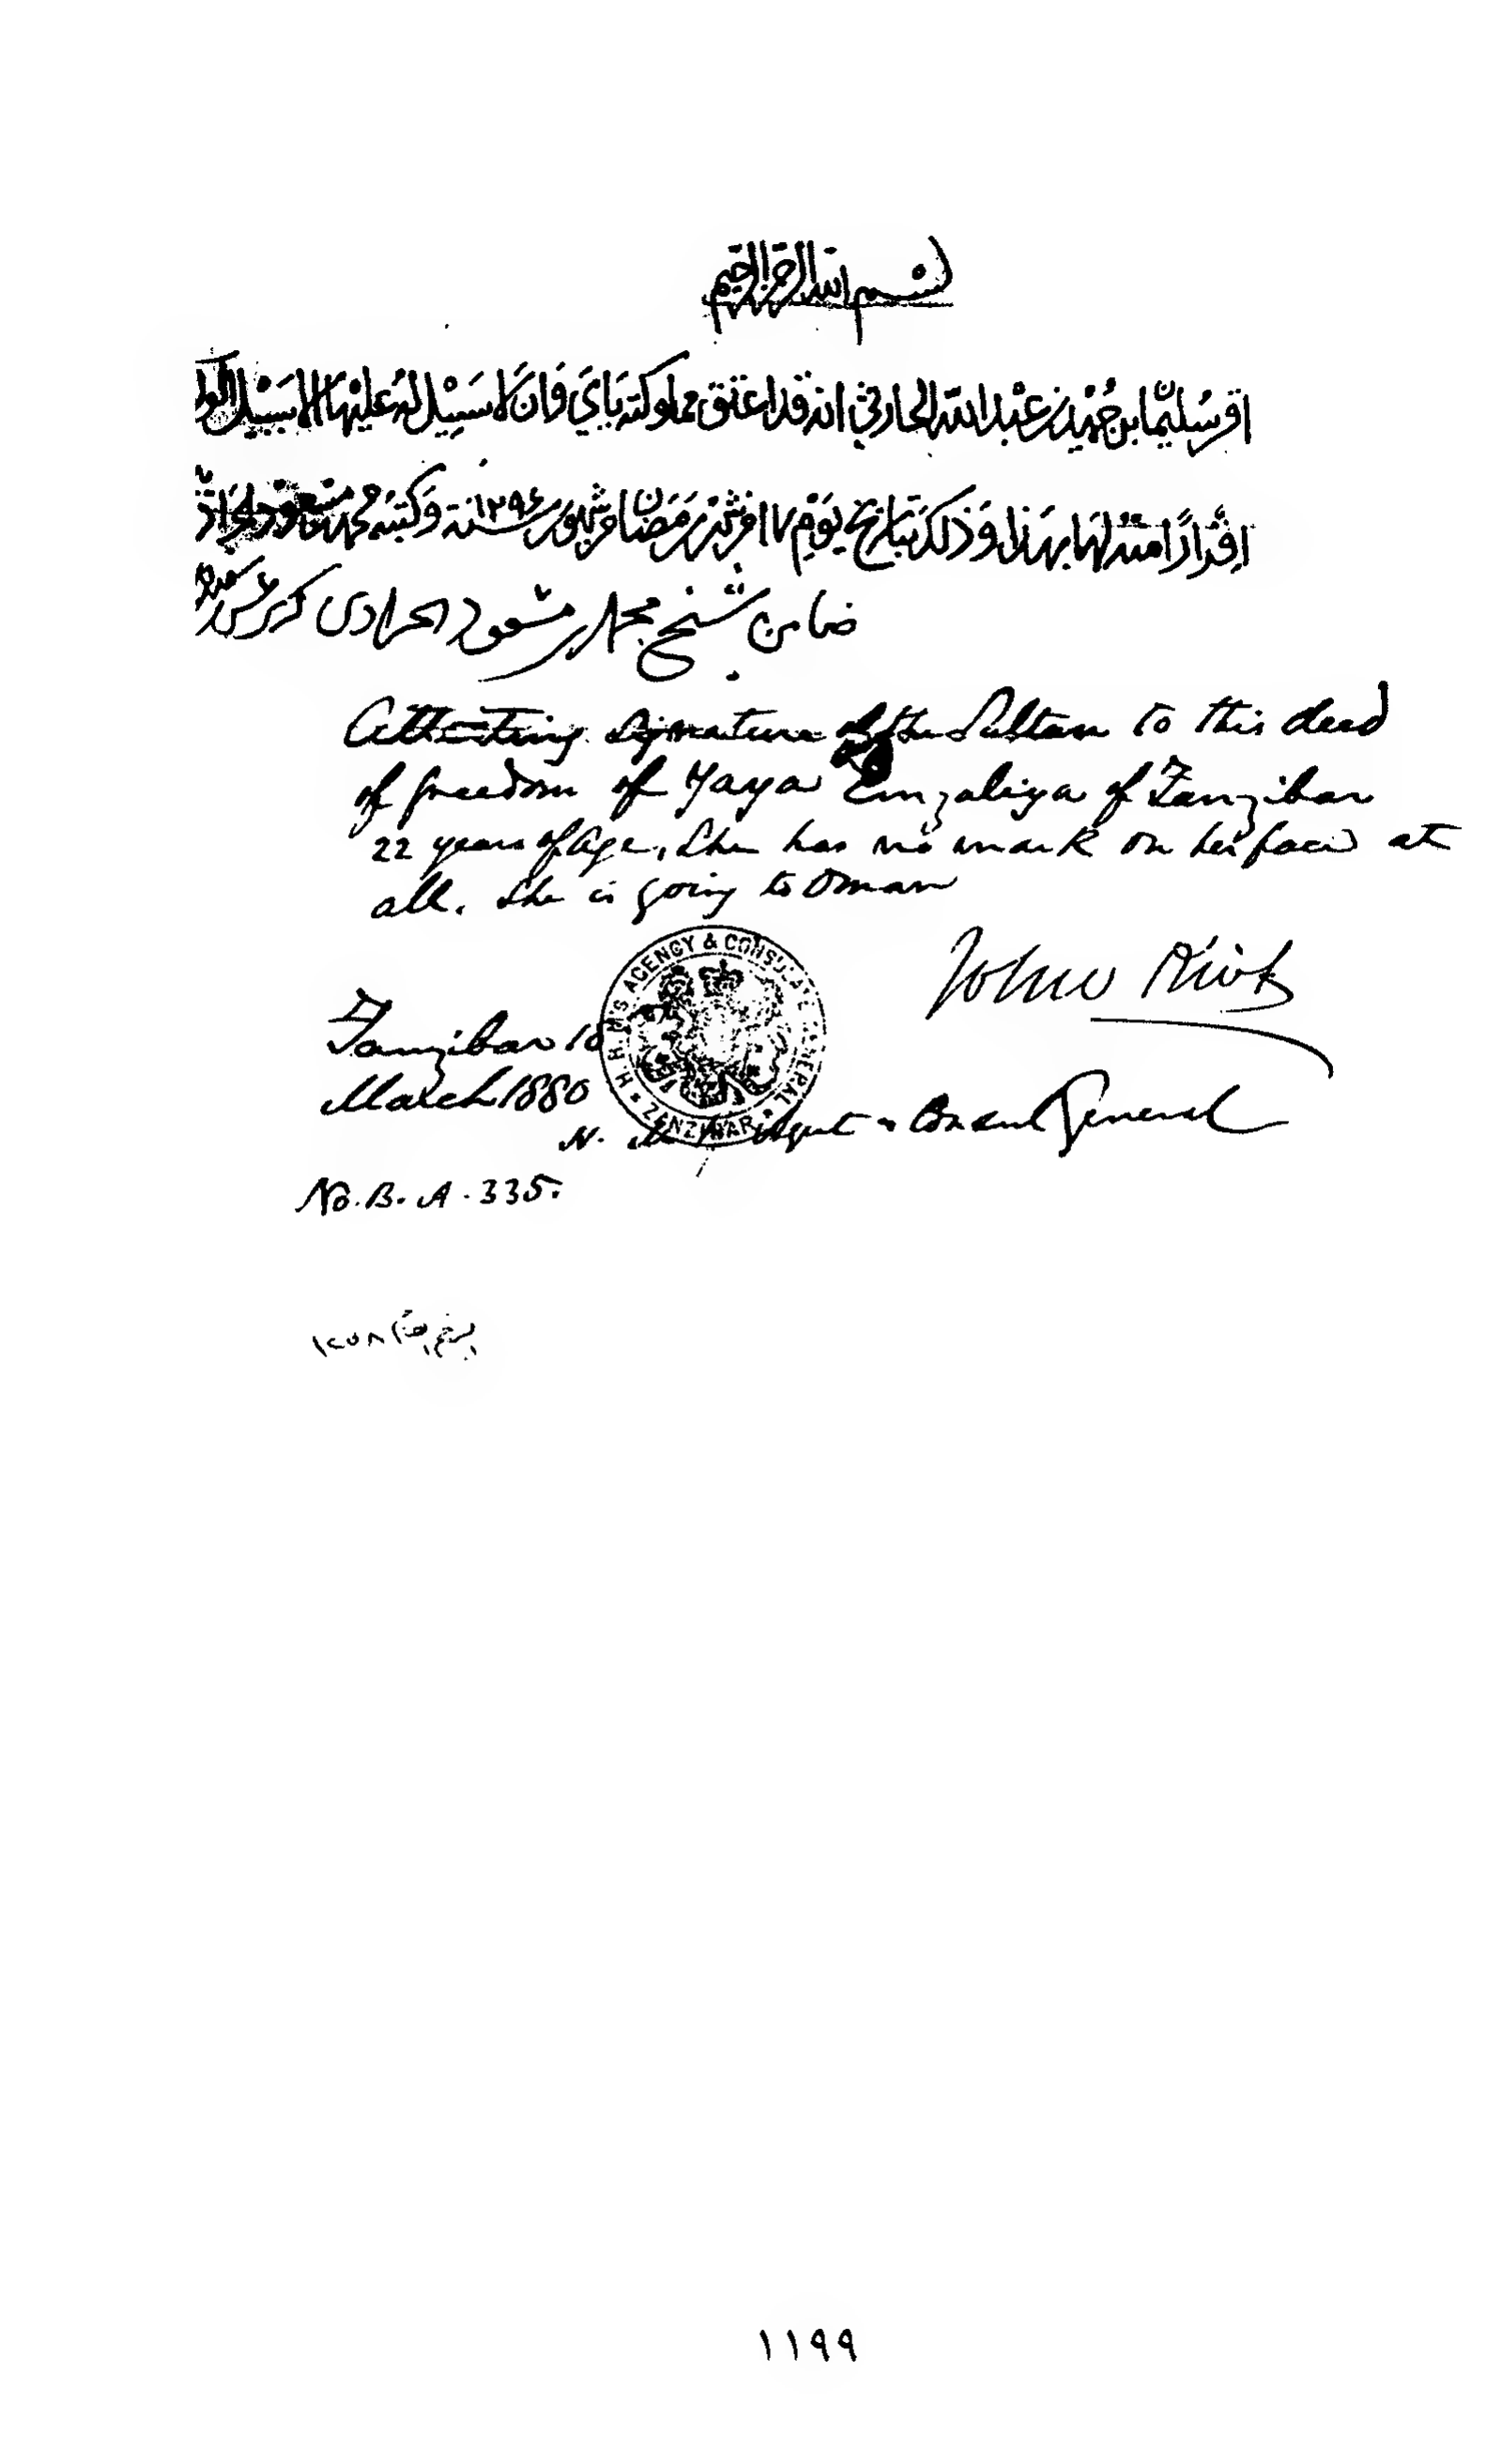 بسم الله الرحمن الرحيم
اقر سُليمٰن بن حُمَيْد بن عَبْد الله الحارثي انه قد اعتق مملوكته يَايَ وَان لَا سَبِيْل لهُ عليْهَا الا سَبيْل الولا
اِقْرارًا منه لهَا بهَذا وَذلكَ بتاريخ يَوْم ١٧ من شهر رَمَضَان من شهور سنة ١٢٩٦ وَكتبَهُ محمد بن مسْعود الحَارثي
ضامن شيخ محمد بن مسعود الحرادى
Attesting signature of the Sultan to this deed
of freedom of Yaya Enzaliya of Zanzibar
22 years of age, she has no mark on her face at
all. She is going to Oman
John Kirk
Zanzibar 18
March 1880
H. M. Agent & Consul General
H. H. M'S AGENCY & CONSULATE GENERAL * ZANZIBAR *
No. B. A. 335.
١١٩٩